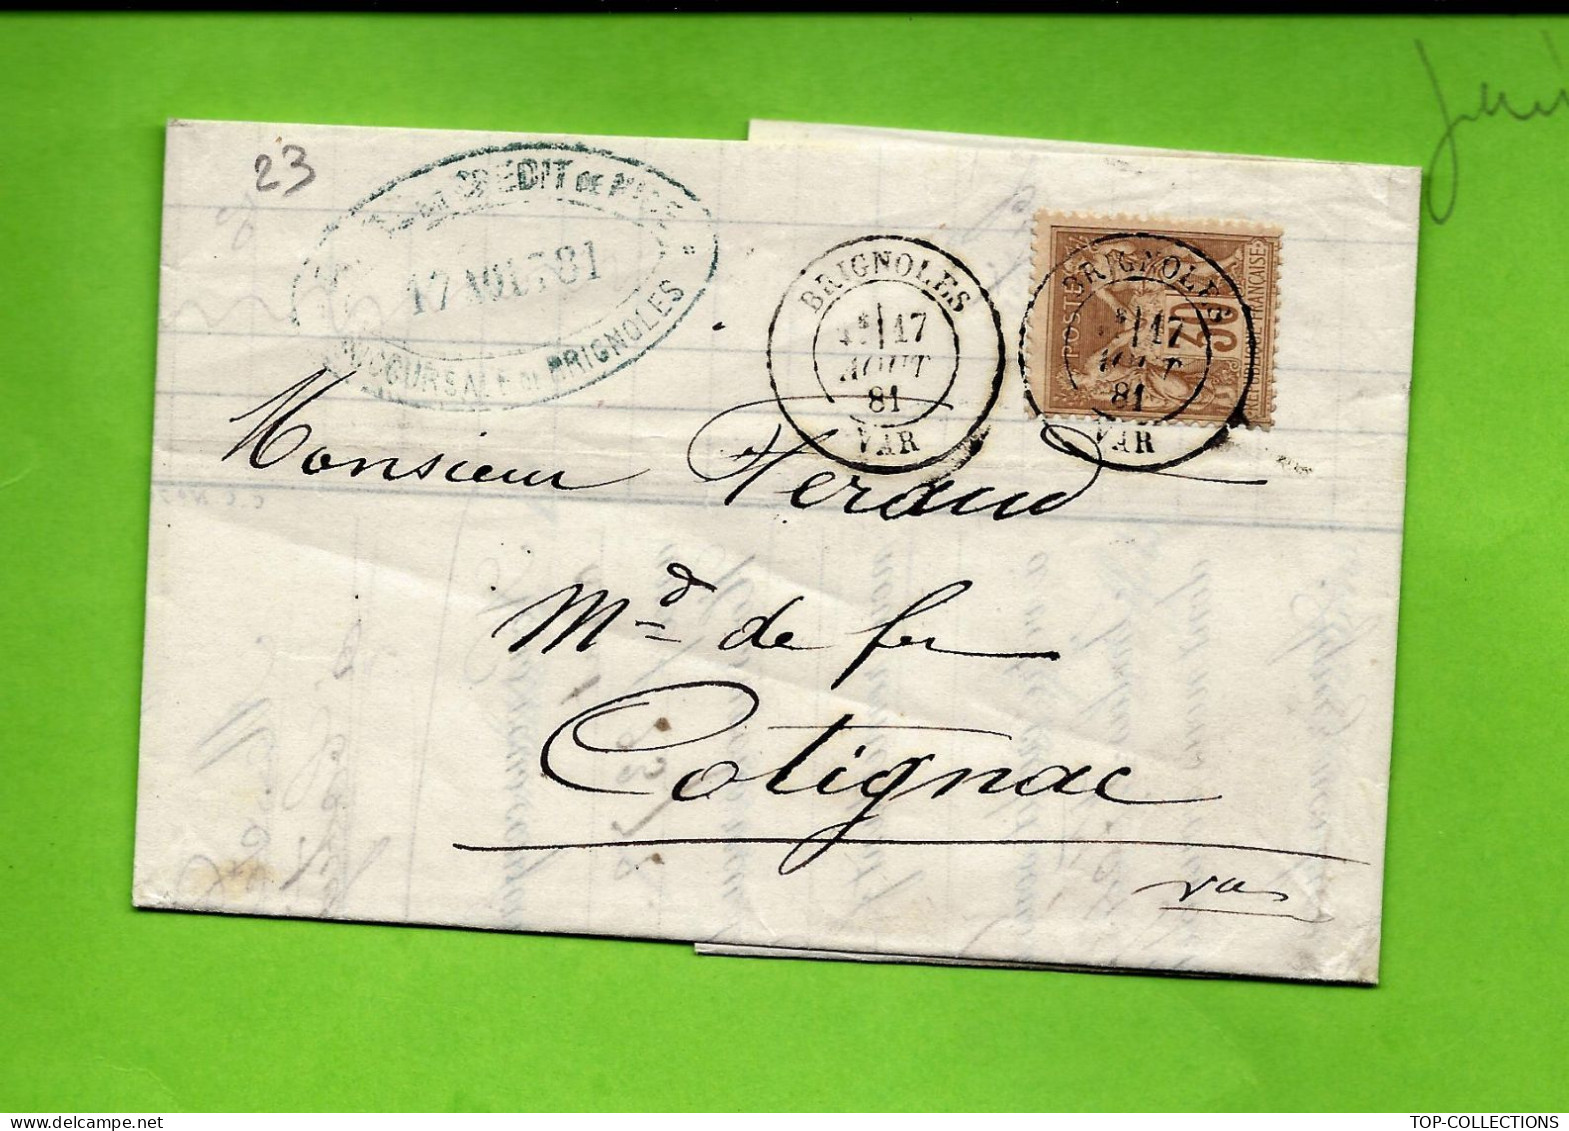 23
CREDIT DE NICE
17 AOUT 81
SUCCURSALE DE BRIGNOLES
BRIGNOLES
17
AOUT
81
VAR
BRIGNOLES
17
AOUT
81
VAR
POSTES
30
REPUBLIQUE FRANÇAISE
Monsieur Feraud
Md de fer
Cotignac
Var
TOP-COLLECTIONS